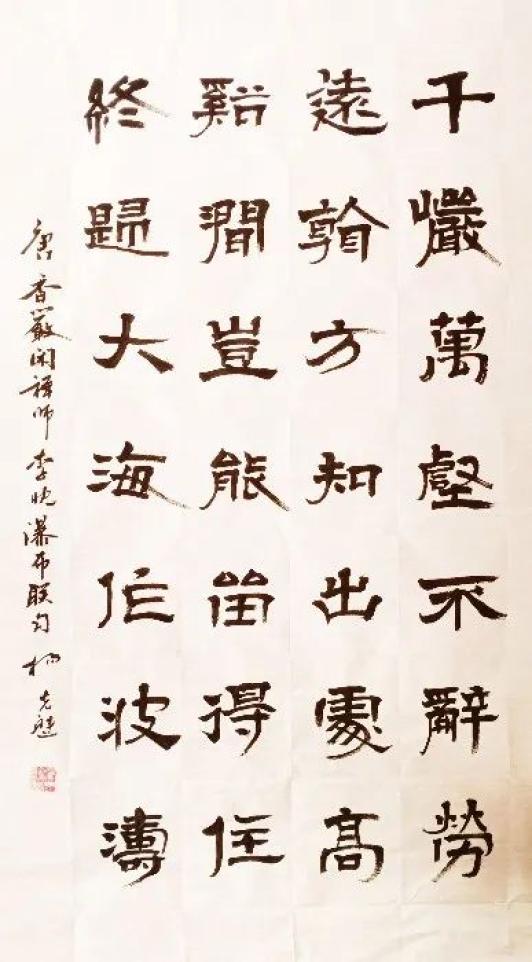 千巖萬壑不辭勞
遠看方知出處高
谿澗豈能留得住
終歸大海作波濤
唐香嚴闲禅师李忱瀑布联句 杨